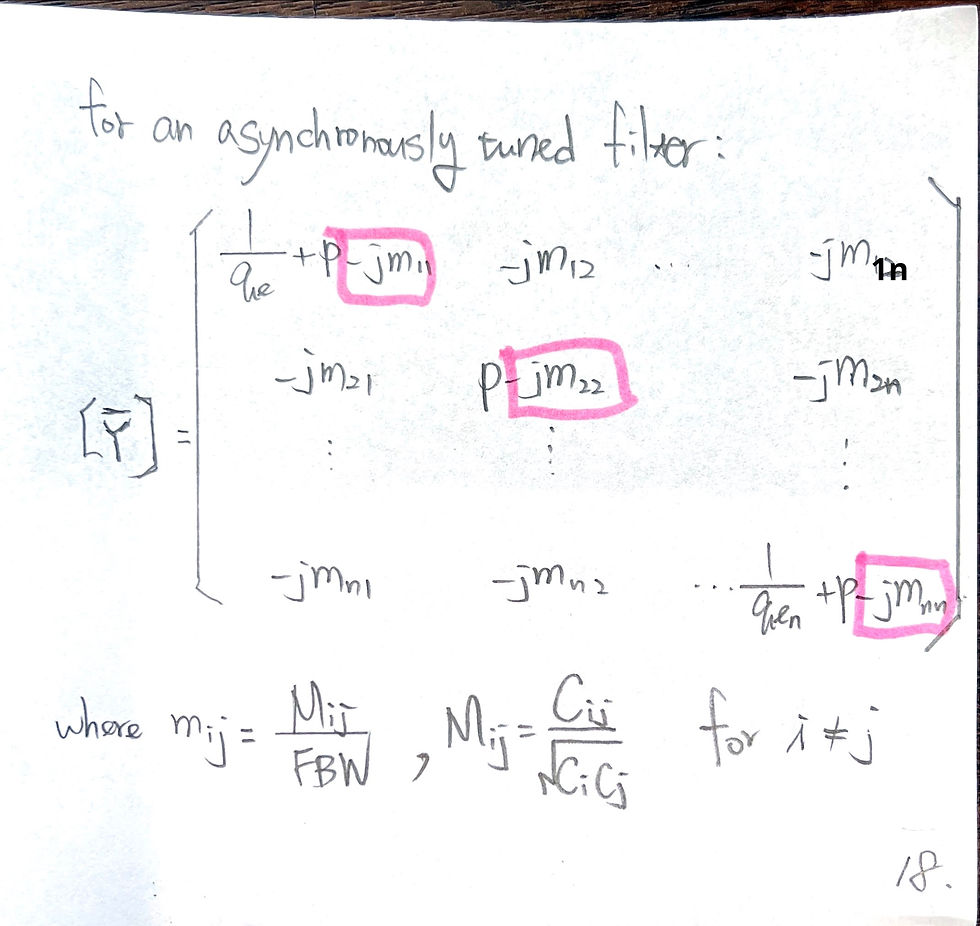 for an asynchronously tuned filter:
1/qe + p - jm11   -jm12   ...   -jm1n
-jm21   p - jm22   -jm2n
[Ȳ] =
⋮   ⋮   ⋮
-jmn1   -jmn2   ... 1/qen + p - jmnn
where mij = Mij/FBW , Mij = Cij/√CiCj   for i ≠ j
18.